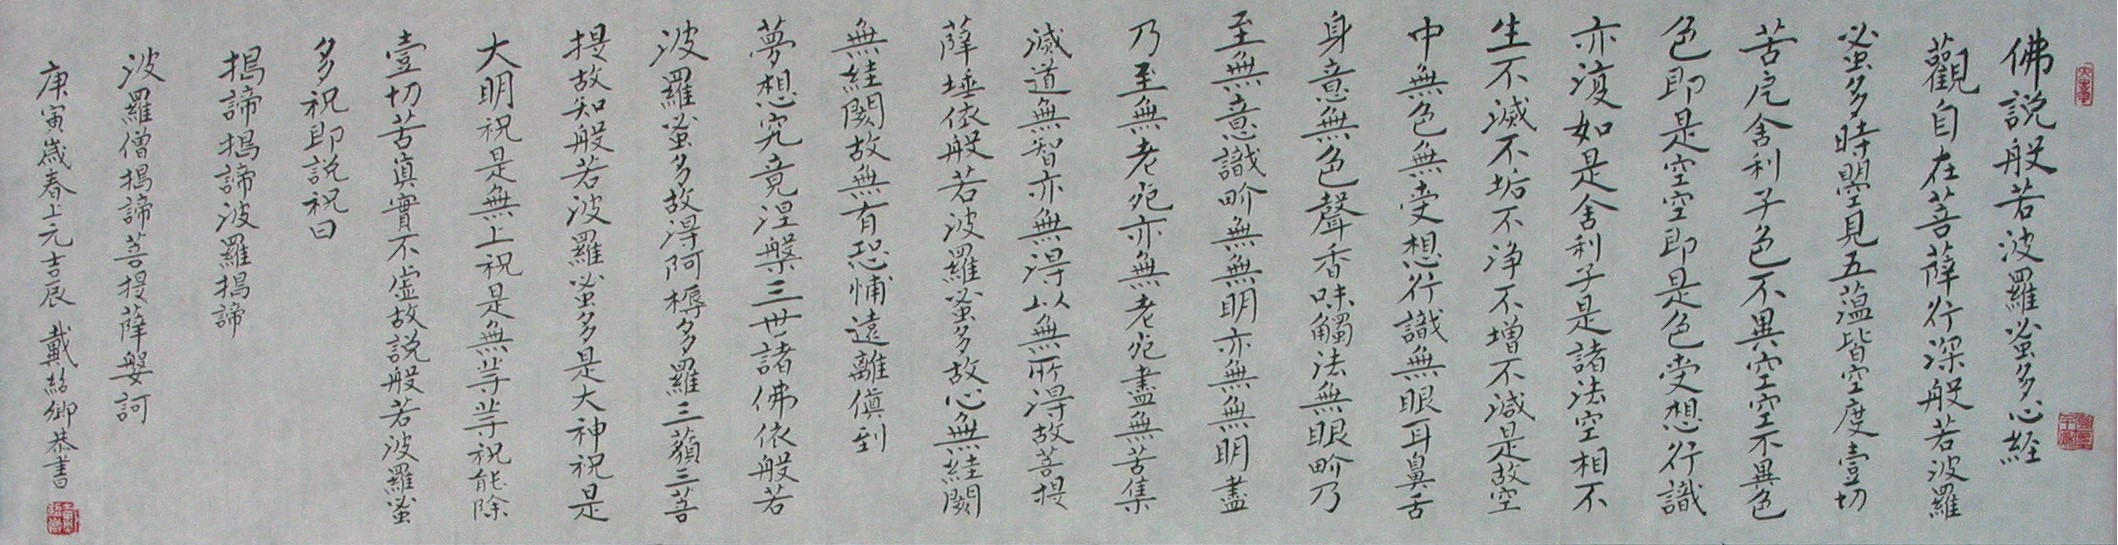 佛說般若波羅蜜多心経
觀自在菩薛行深般若波羅
蜜多時照空見五蕴皆空度壹切
苦厄舍利子色不異空空不異色
色即是空空即是色受想行識
亦復如是舍利子是諸法空相不
生不滅不垢不净不增不減是故空
中無色無受想行識無眼耳鼻舌
身意無色聲香味觸法無眼界乃
至無意識界無無明亦無無明盡
乃至無老死亦無老死盡無苦集
滅道無智亦無得以無所得故菩提
薛埵依般若波羅蜜多故心無絓閡
無絓閡故無有恐怖遠離傎到
夢想究竟涅槃三世諸佛依般若
波羅蜜多故得阿耨多羅三藐三菩
提故知般若波羅蜜多是大神祝是
大明祝是無上祝是無等等祝能除
壹切苦真實不虛故說般若波羅蜜
多祝即說祝曰
揭諦揭諦波羅揭諦
波羅僧揭諦菩提薛婆訶
庚寅歲春上元吉辰 戴紹卿恭書